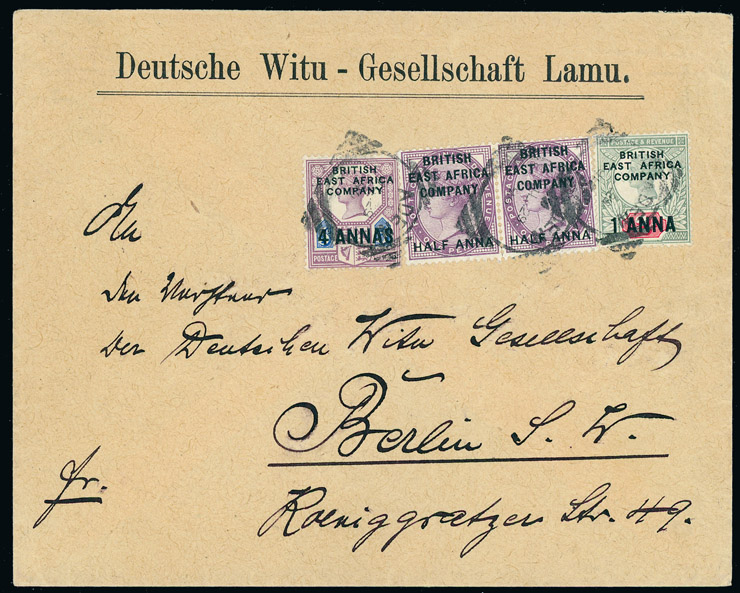 Deutsche Witu - Gesellschaft Lamu.
BRITISH
EAST AFRICA
COMPANY
4 ANNAS
POSTAGE
BRITISH
EAST AFRICA
COMPANY
HALF ANNA
BRITISH
EAST AFRICA
COMPANY
HALF ANNA
POSTAGE & REVENUE
BRITISH
EAST AFRICA
COMPANY
1 ANNA
An
den
der Deutschen Witu Gesellschaft
Berlin S. W.
fr.
Koeniggratzer Str. 49.